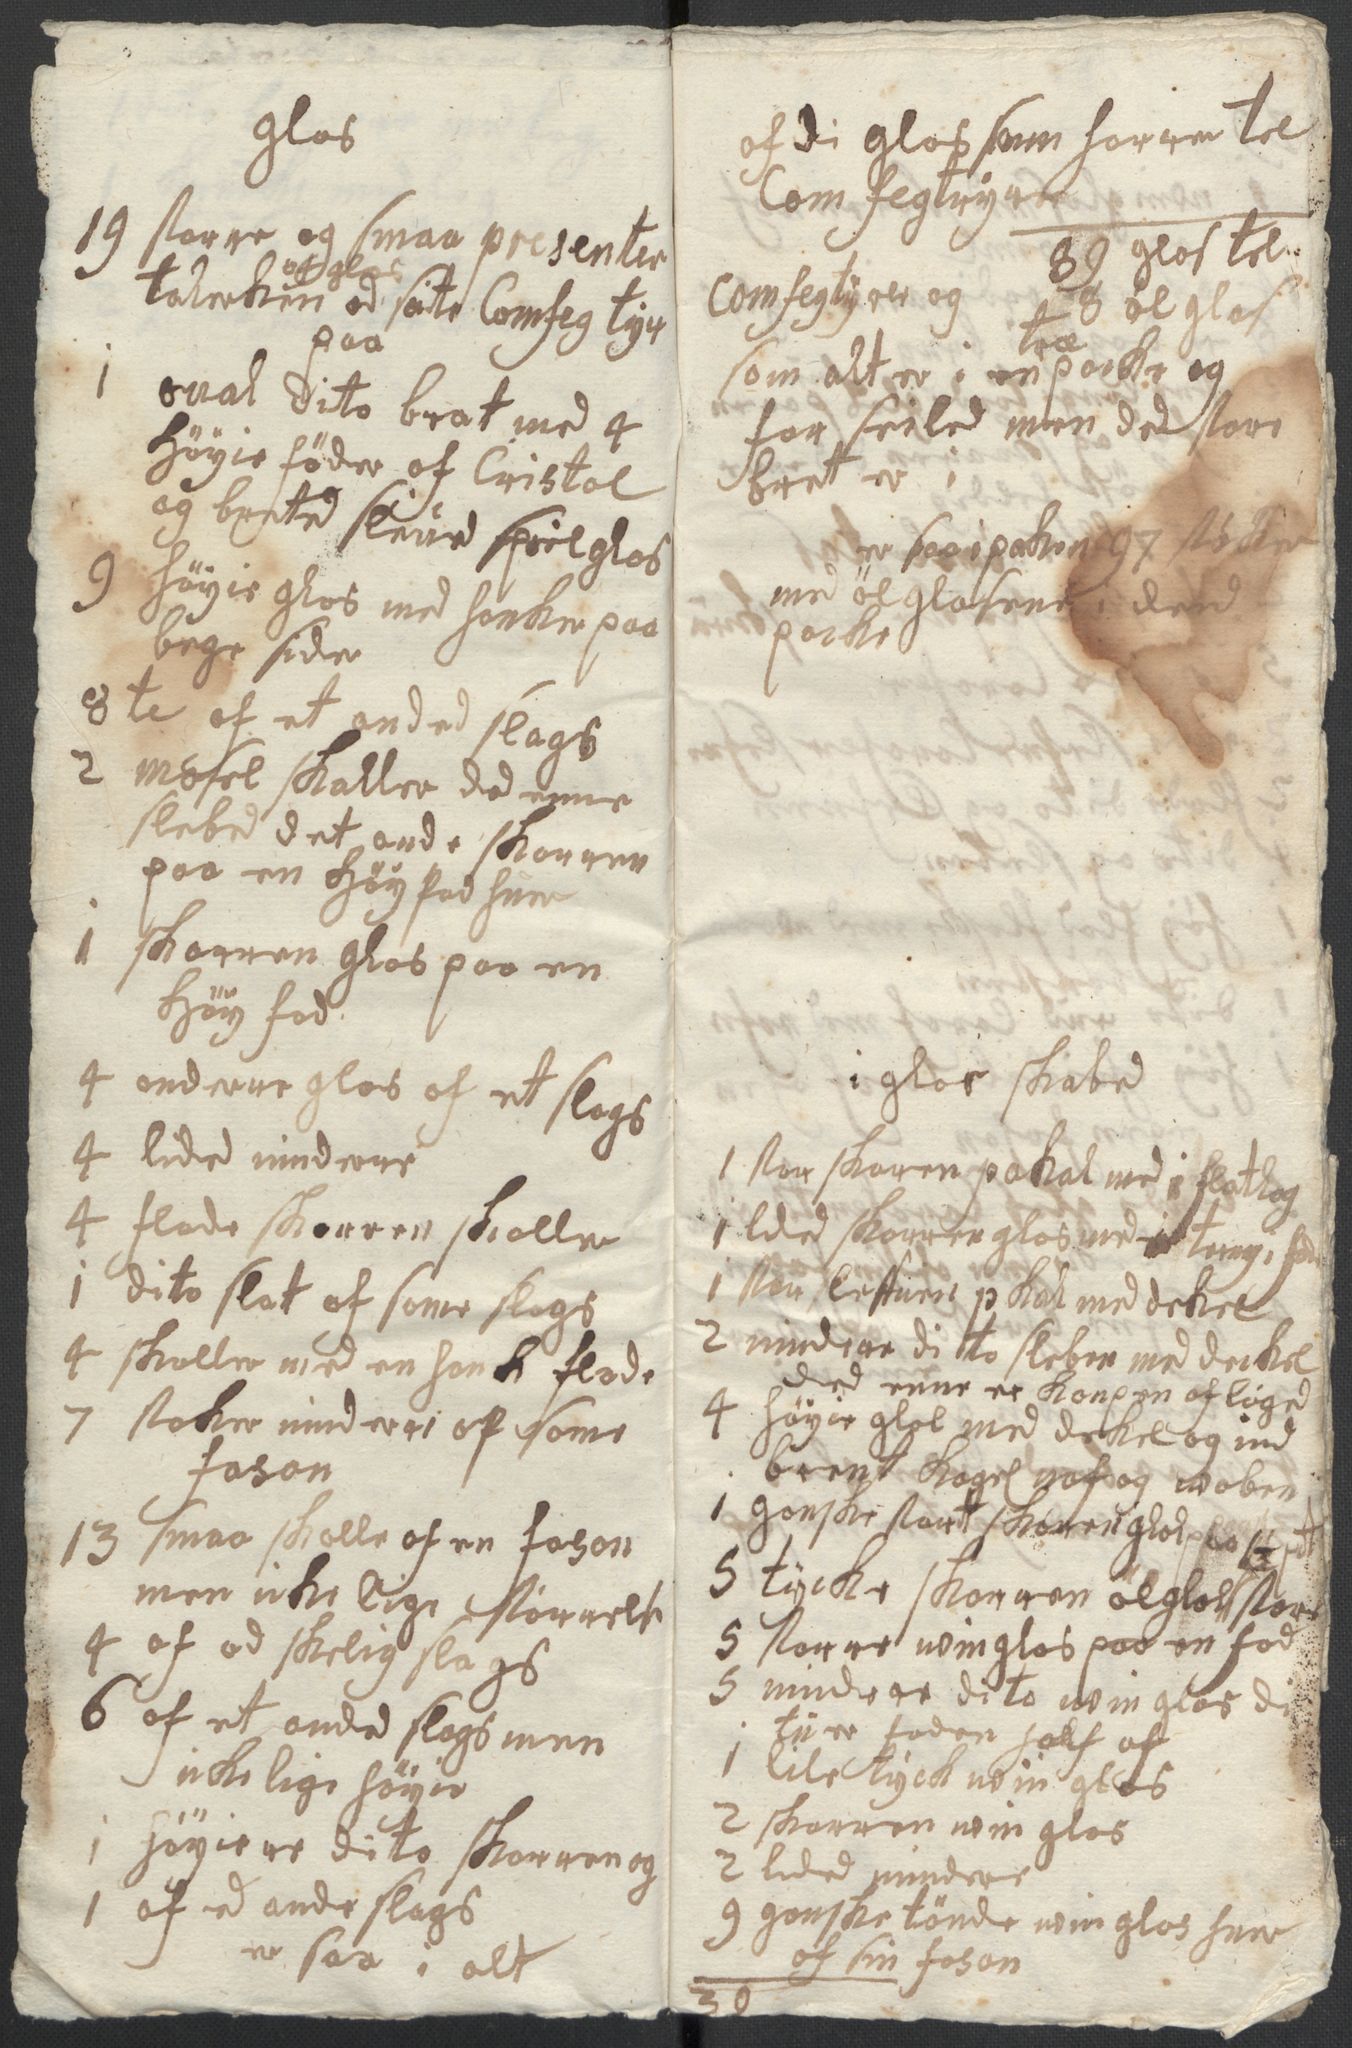 glas
19 storre og smaa presenter
talerken af glas ad sæte Comfeg tyr
paa
1 oval dito bræt med 4
höyie föder af Cristal
og breted sleved speilglas
9 höyie glas med hanker paa
bege sider
8te af et anded slags
2 mosel skaller ded enne
slebed det ande skorren
paa en höy fod huer
1 skorren glas paa en
höy fod
4 anderre glas af et slags
4 lided minderre
4 flade skorren skaller
1 dito slat af same slags
4 skaller med en hank flade
7 støker minderre af same
fason
13 smaa skalle af en fason
men icke lige størrelse
4 af ad skelig slags
6 af et anded slags men
icke lige höyie
1 höyierre dito skorren og
1 af ed ande slags
er saa i alt
af di glas som hørrer tel
Comfegtyrre
89 glas tel
Comfegtyrer og 8 öl glas
som alt er i en træ packe og
for seiled men ded store
bret er i
er saa i paken 97 støker
med ölglasene i deed
packe
i glas skabed
1 stor skoren pokal med i flat log
1 lided skorren glas med tenny fod
1 stor pkal med dekel
2 mindere dito sleben med deckel
ded enne er knopen af løged
4 höyie glas med dekel og ind
brent Kogel nafog woben
1 ganske stort skoren glas paa
5 tycke skorren ölglas store
5 storre win glas paa en fod
5 mindere dito win glas di
tu er foden half af
1 lile tyck win glas
2 skorren win glas
2 lided mindere
9 ganske tönde win glas huer
af sin fason
30